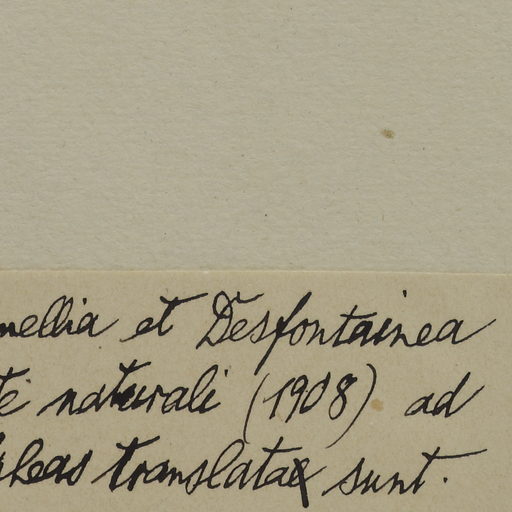 mellia et Desfontainea
te naturali (1908) ad
heas translatae sunt.